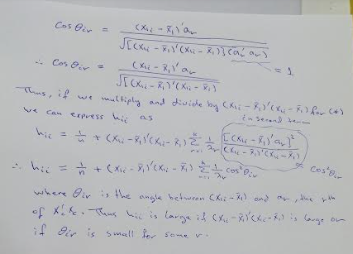 cos θir = (x1i - x̄1)'ar / √{[(x1i - x̄1)'(x1i - x̄1)](ar'ar)} = 1
∴ cos θir = (x1i - x̄1)'ar / √{(x1i - x̄1)'(x1i - x̄1)}
Thus, if we multiply and divide by (x1i - x̄1)'(x1i - x̄1) for (*)
in second term
we can express hii as
hii = 1/n + (x1i - x̄1)'(x1i - x̄1) Σ 1/λr {[(x1i - x̄1)'ar]² / (x1i - x̄1)'(x1i - x̄1)}
= cos²θir
∴ hii = 1/n + (x1i - x̄1)'(x1i - x̄1) Σ 1/λr cos²θir
where θir is the angle between (x1i - x̄1) and ar, the rth
of Xc'Xc. Thus hii is large if (x1i - x̄1)'(x1i - x̄1) is large or
if θir is small for some r.